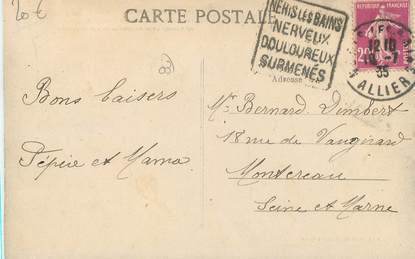 20 €
CARTE POSTALE
NERIS LES BAINS
NERVEUX
DOULOUREUX
SURMENES
REPUBLIQUE FRANÇAISE
12 10
10 - 7
35
ALLIER
Adresse
Bons baisers
Pépée et Mama
Mr Bernard Dimbert
18 rue de Vaugirard
Montereau
Seine et Marne